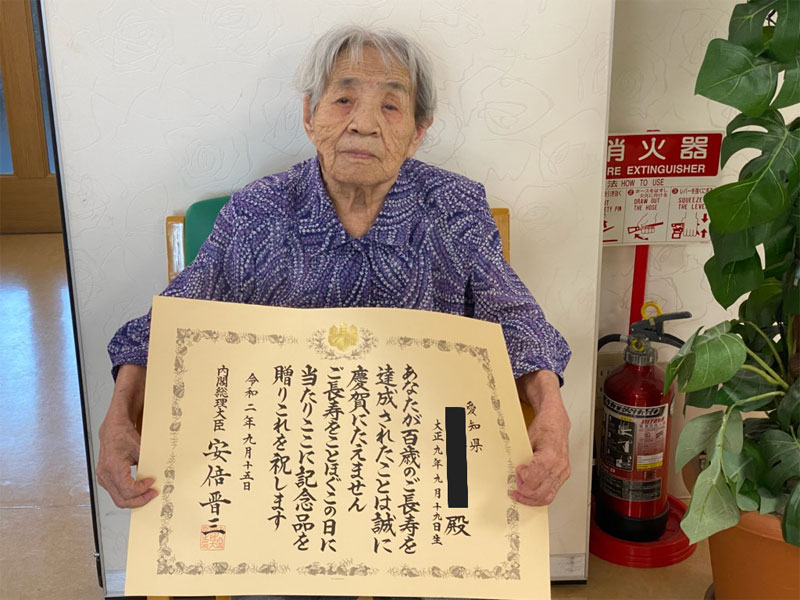 愛知県
殿
大正九年九月十九日生
あなたが百歳のご長寿を
達成されたことは誠に
慶賀にたえません
ご長寿をことほぐこの日に
当たりここに記念品を
贈りこれを祝します
令和二年九月十五日
内閣総理大臣 安倍晋三
消火器
FIRE EXTINGUISHER
法 HOW TO USE
② ホースをはずし
DRAW OUT
THE HOSE
③ レバーを強くにぎる
SQUEEZE
THE LEVE
TY PIN